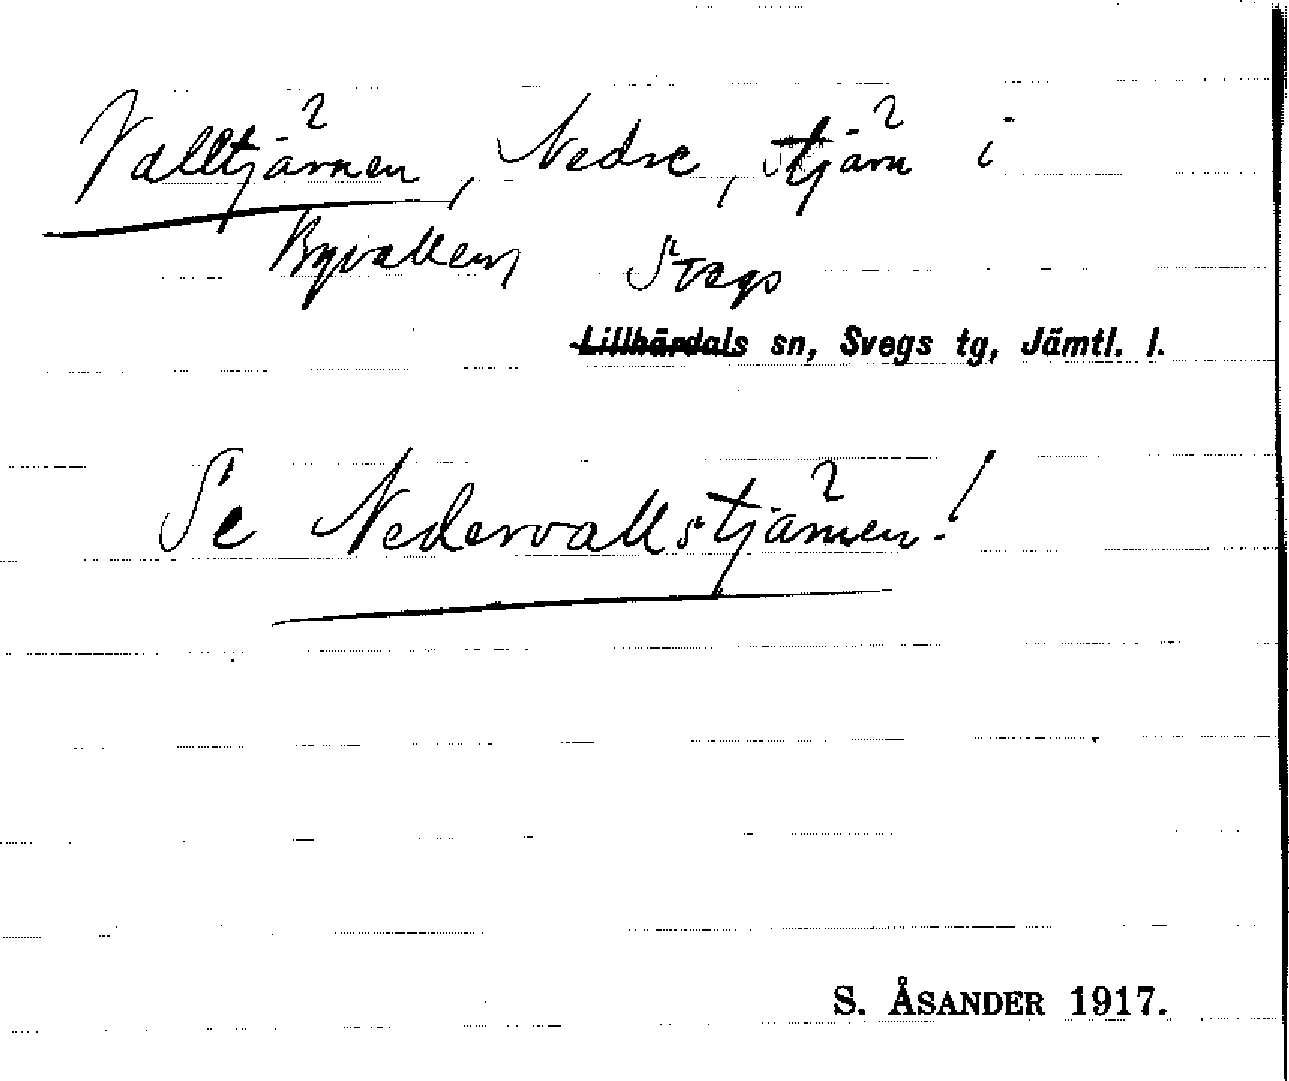 Valltjärnen, Nedre, tjärn i
Byvallen Svegs
Lillhärdals sn, Svegs tg, Jämtl. l.
Se Nedervallstjärnen!
S. ÅSANDER 1917.